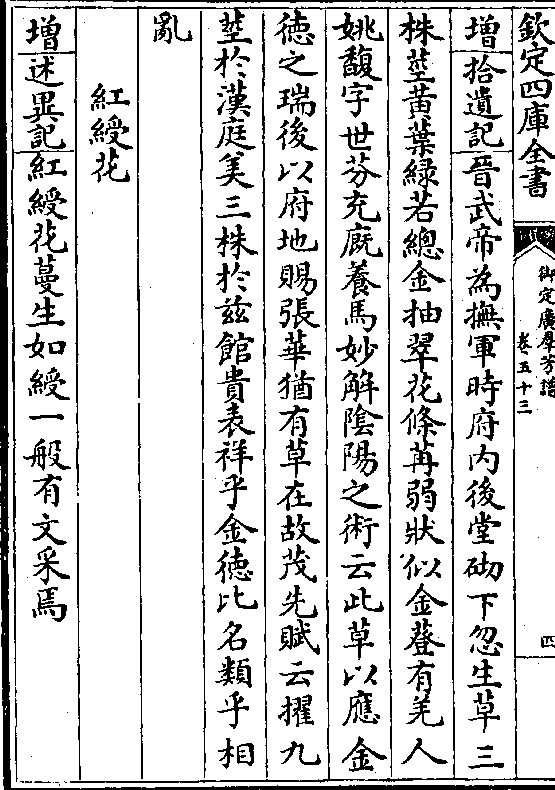 欽定四庫全書
御定廣羣芳譜
卷五十三
四
增拾遺記晉武帝為撫軍時府内後堂砌下忽生草三
株莖黄葉緑若總金抽翠花條苒弱狀似金䔲有羌人
姚馥字世芬充廐養馬妙解隂陽之術云此草以應金
徳之瑞後以府地賜張華猶有草在故茂先賦云擢九
莖於漢庭美三株於兹館貴表祥乎金徳比名類乎相
亂
紅綬花
增述異記紅綬花蔓生如綬一般有文采焉